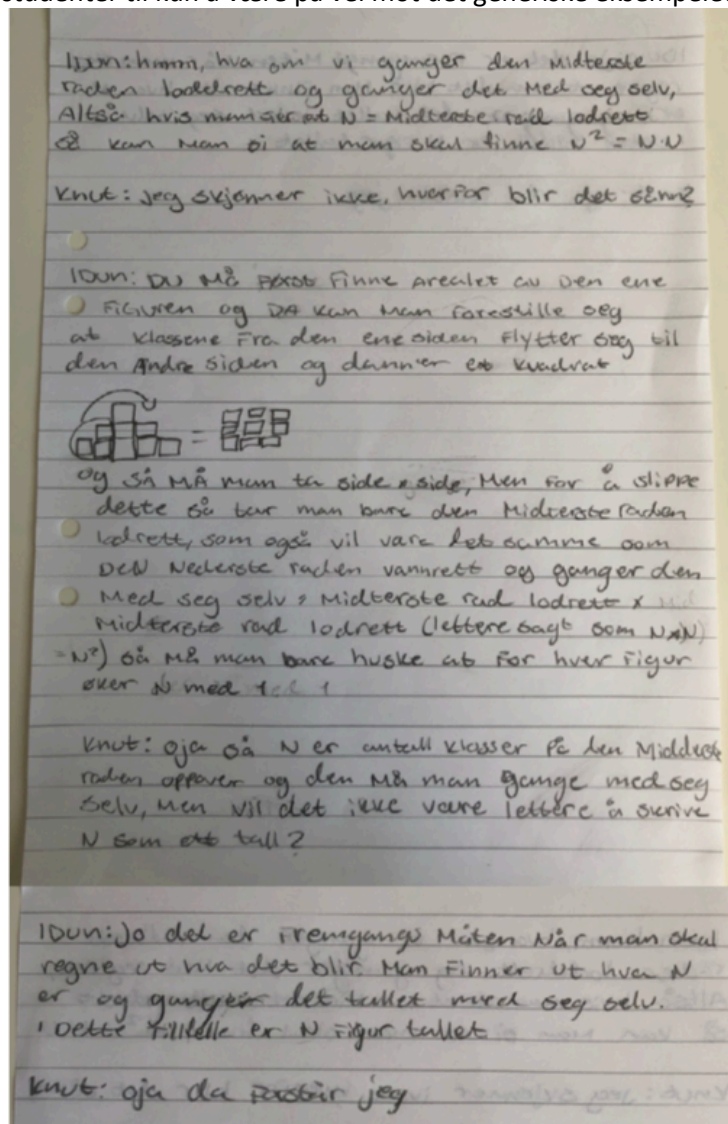 studenter til kan å være på vei mot det generiske eksempelet
IDUN: hmmm, hva om vi ganger den Midterste
raden loddrett og ganger det Med seg selv,
Altså hvis man sier at N = Midterste rad lodrett
så kan Man si at man skal finne N² = N·N
Knut: Jeg skjønner ikke, hvorfor blir det sånn?
IDUN: DU MÅ Først Finne Arealet av Den ene
Figuren og DA kan Man forestille seg
at klossene Fra den ene siden Flytter seg til
den Andre siden og danner et kvadrat
=
og SÅ MÅ man ta side x side, Men For å slippe
dette så tar man bare den Midterste raden
lodrett, som også vil være det samme som
DEN Nederste raden vannrett og ganger den
Med seg selv = Midterste rad lodrett x
Midterste rad lodrett (lettere sagt som N×N)
=N²) så MÅ man bare huske at For hver Figur
øker N med 1
Knut: oja så N er antall klosser På den Midterste
raden oppover og den MÅ man gange med seg
Selv, Men vil det ikke være lettere å skrive
N som ett tall?
IDUN: Jo det er Fremgangs Måten Når man skal
regne ut hva det blir Man Finner ut hva N
er og ganger det tallet med seg selv.
I Dette Tilfelle er N Figur tallet
Knut: oja da Forstår jeg